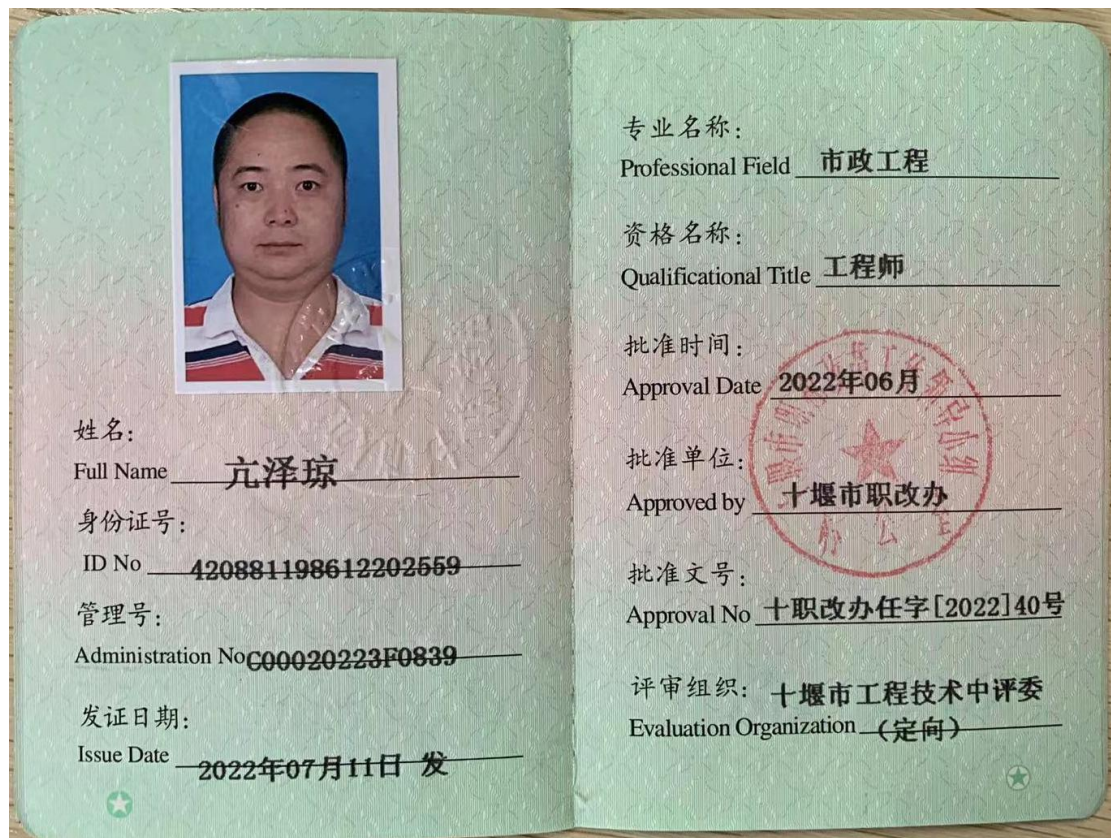 姓名:
Full Name 亢泽琼
身份证号:
ID No 420881198612202559
管理号:
Administration No C00020223F0839
发证日期:
Issue Date 2022年07月11日 发
专业名称:
Professional Field 市政工程
资格名称:
Qualificational Title 工程师
批准时间:
Approval Date 2022年06月
批准单位:
Approved by 十堰市职改办
批准文号:
Approval No 十职改办任字[2022]40号
评审组织: 十堰市工程技术中评委
Evaluation Organization (定向)
办公室